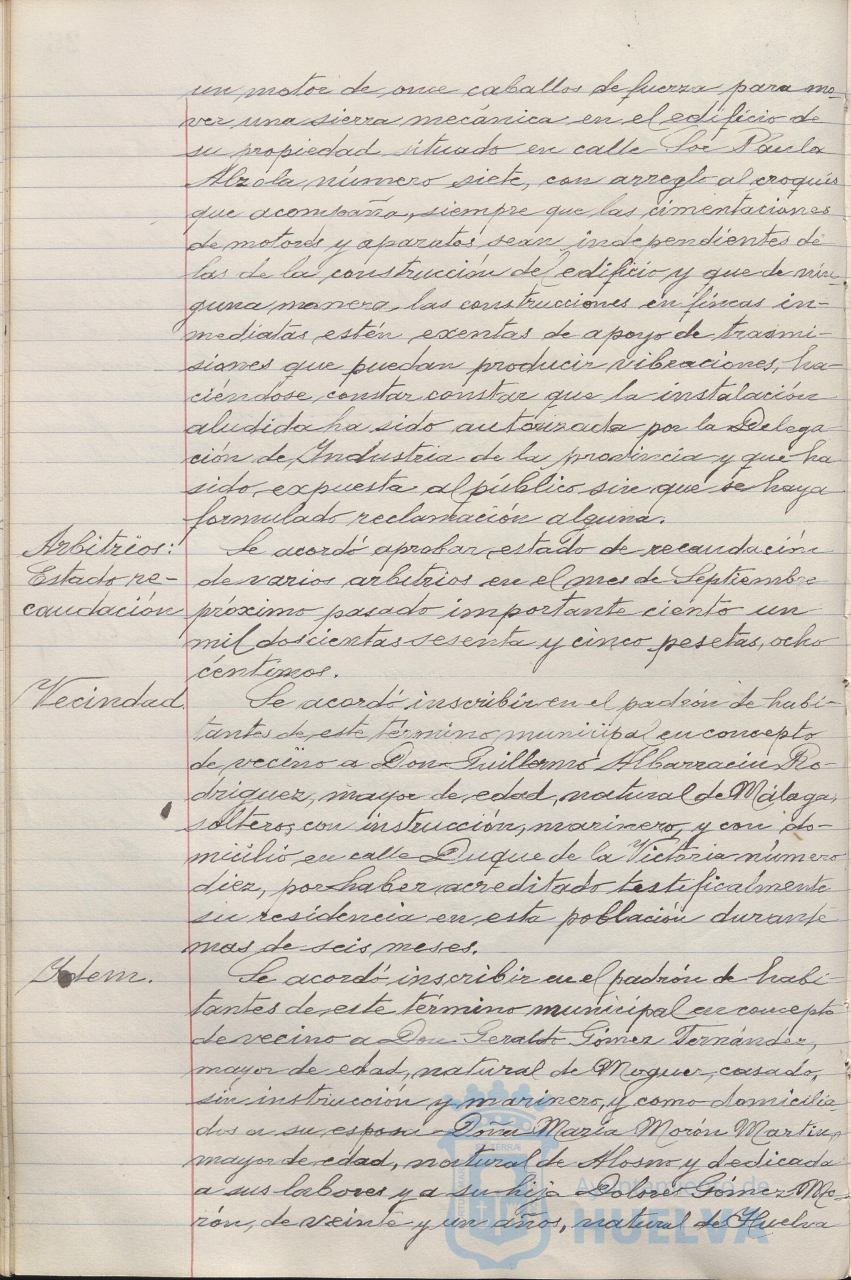 un motor de once caballos de fuerza para mo-
ver una sierra mecánica en el edificio de
su propiedad situado en calle Sor Paula
Alzola número siete, con arreglo al croquis
que acompaña, siempre que las cimentaciones
de motores y aparatos sean independientes de
las de la construcción del edificio y que de nin-
guna manera, las construcciones en fincas in-
mediatas estén exentas de apoyo de trasmi-
siones que puedan producir vibraciones, ha-
ciéndose constar constar que la instalación
aludida ha sido autorizada por la Delega
ción de Industria de la provincia y que ha
sido expuesta al público sin que se haya
formulado reclamación alguna.
Arbitrios:
Estado re-
caudación
Se acordó aprobar estado de recaudación
de varios arbitrios en el mes de Septiembre
próximo pasado importante ciento un
mil doscientas sesenta y cinco pesetas, ocho
céntimos.
Vecindad.
Se acordó inscribir en el padrón de habi-
tantes de este término municipal en concepto
de vecino a Don Guillermo Albarracin Ro-
driguez, mayor de edad, natural de Málaga,
soltero, con instrucción, marinero, y con do-
micilio en calle Duque de la Victoria número
diez, por haber acreditado testificalmente
su residencia en esta población durante
mas de seis meses.
Idem.
Se acordó inscribir en el padrón de habi-
tantes de este término municipal en concepto
de vecino a Don Geraldo Gómez Fernández,
mayor de edad, natural de Moguer, casado,
sin instrucción y marinero, y como domicilia-
dos a su esposa Doña María Morón Martin,
mayor de edad, natural de Alosno y dedicada
a sus labores y a su hija Dolores Gómez Mo-
rón, de veinte y un años, natural de Huelva
Ayuntamiento de
HUELVA